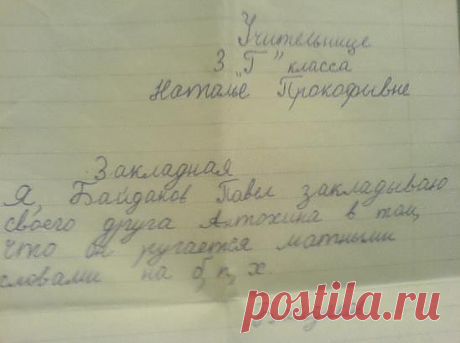 Учительнице
3 „Г" класса
Наталье Прокофивне
Закладная
Я, Байдаков Павел закладываю
своего друга Антохина в том,
что он ругается матными
словами на б, п, х.
postila.ru